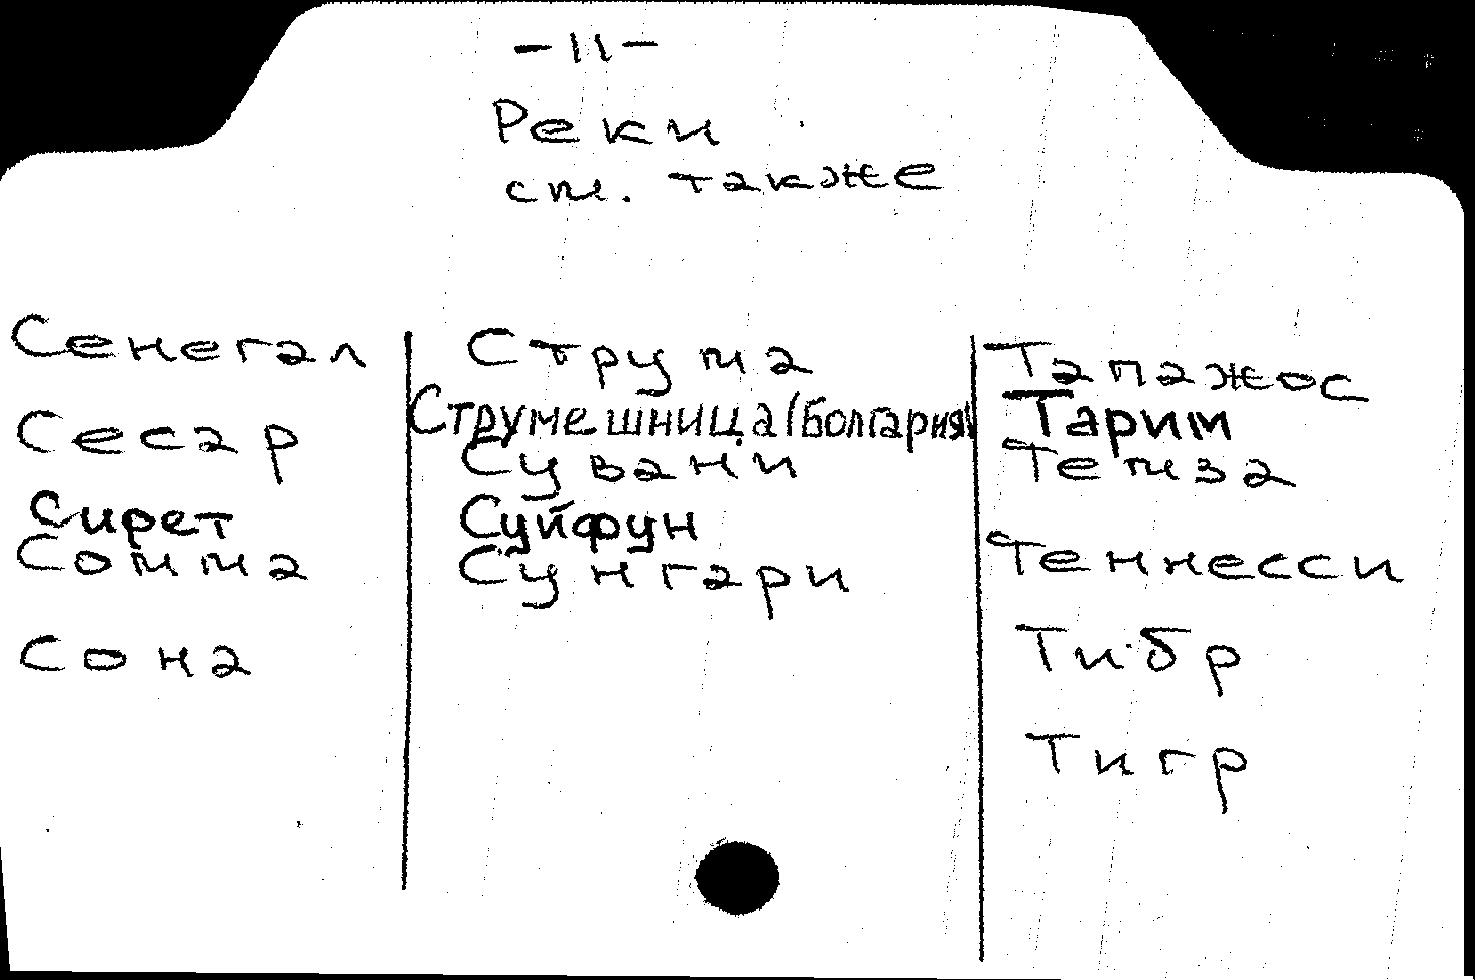 - 11 -
Реки
см. также
Сенегал
Сесар
Сирет
Сомма
Сона
Струма
Струмешница (Болгария)
Сувани
Суйфун
Сунгари
Тапажос
Тарим
Темза
Теннесси
Тибр
Тигр